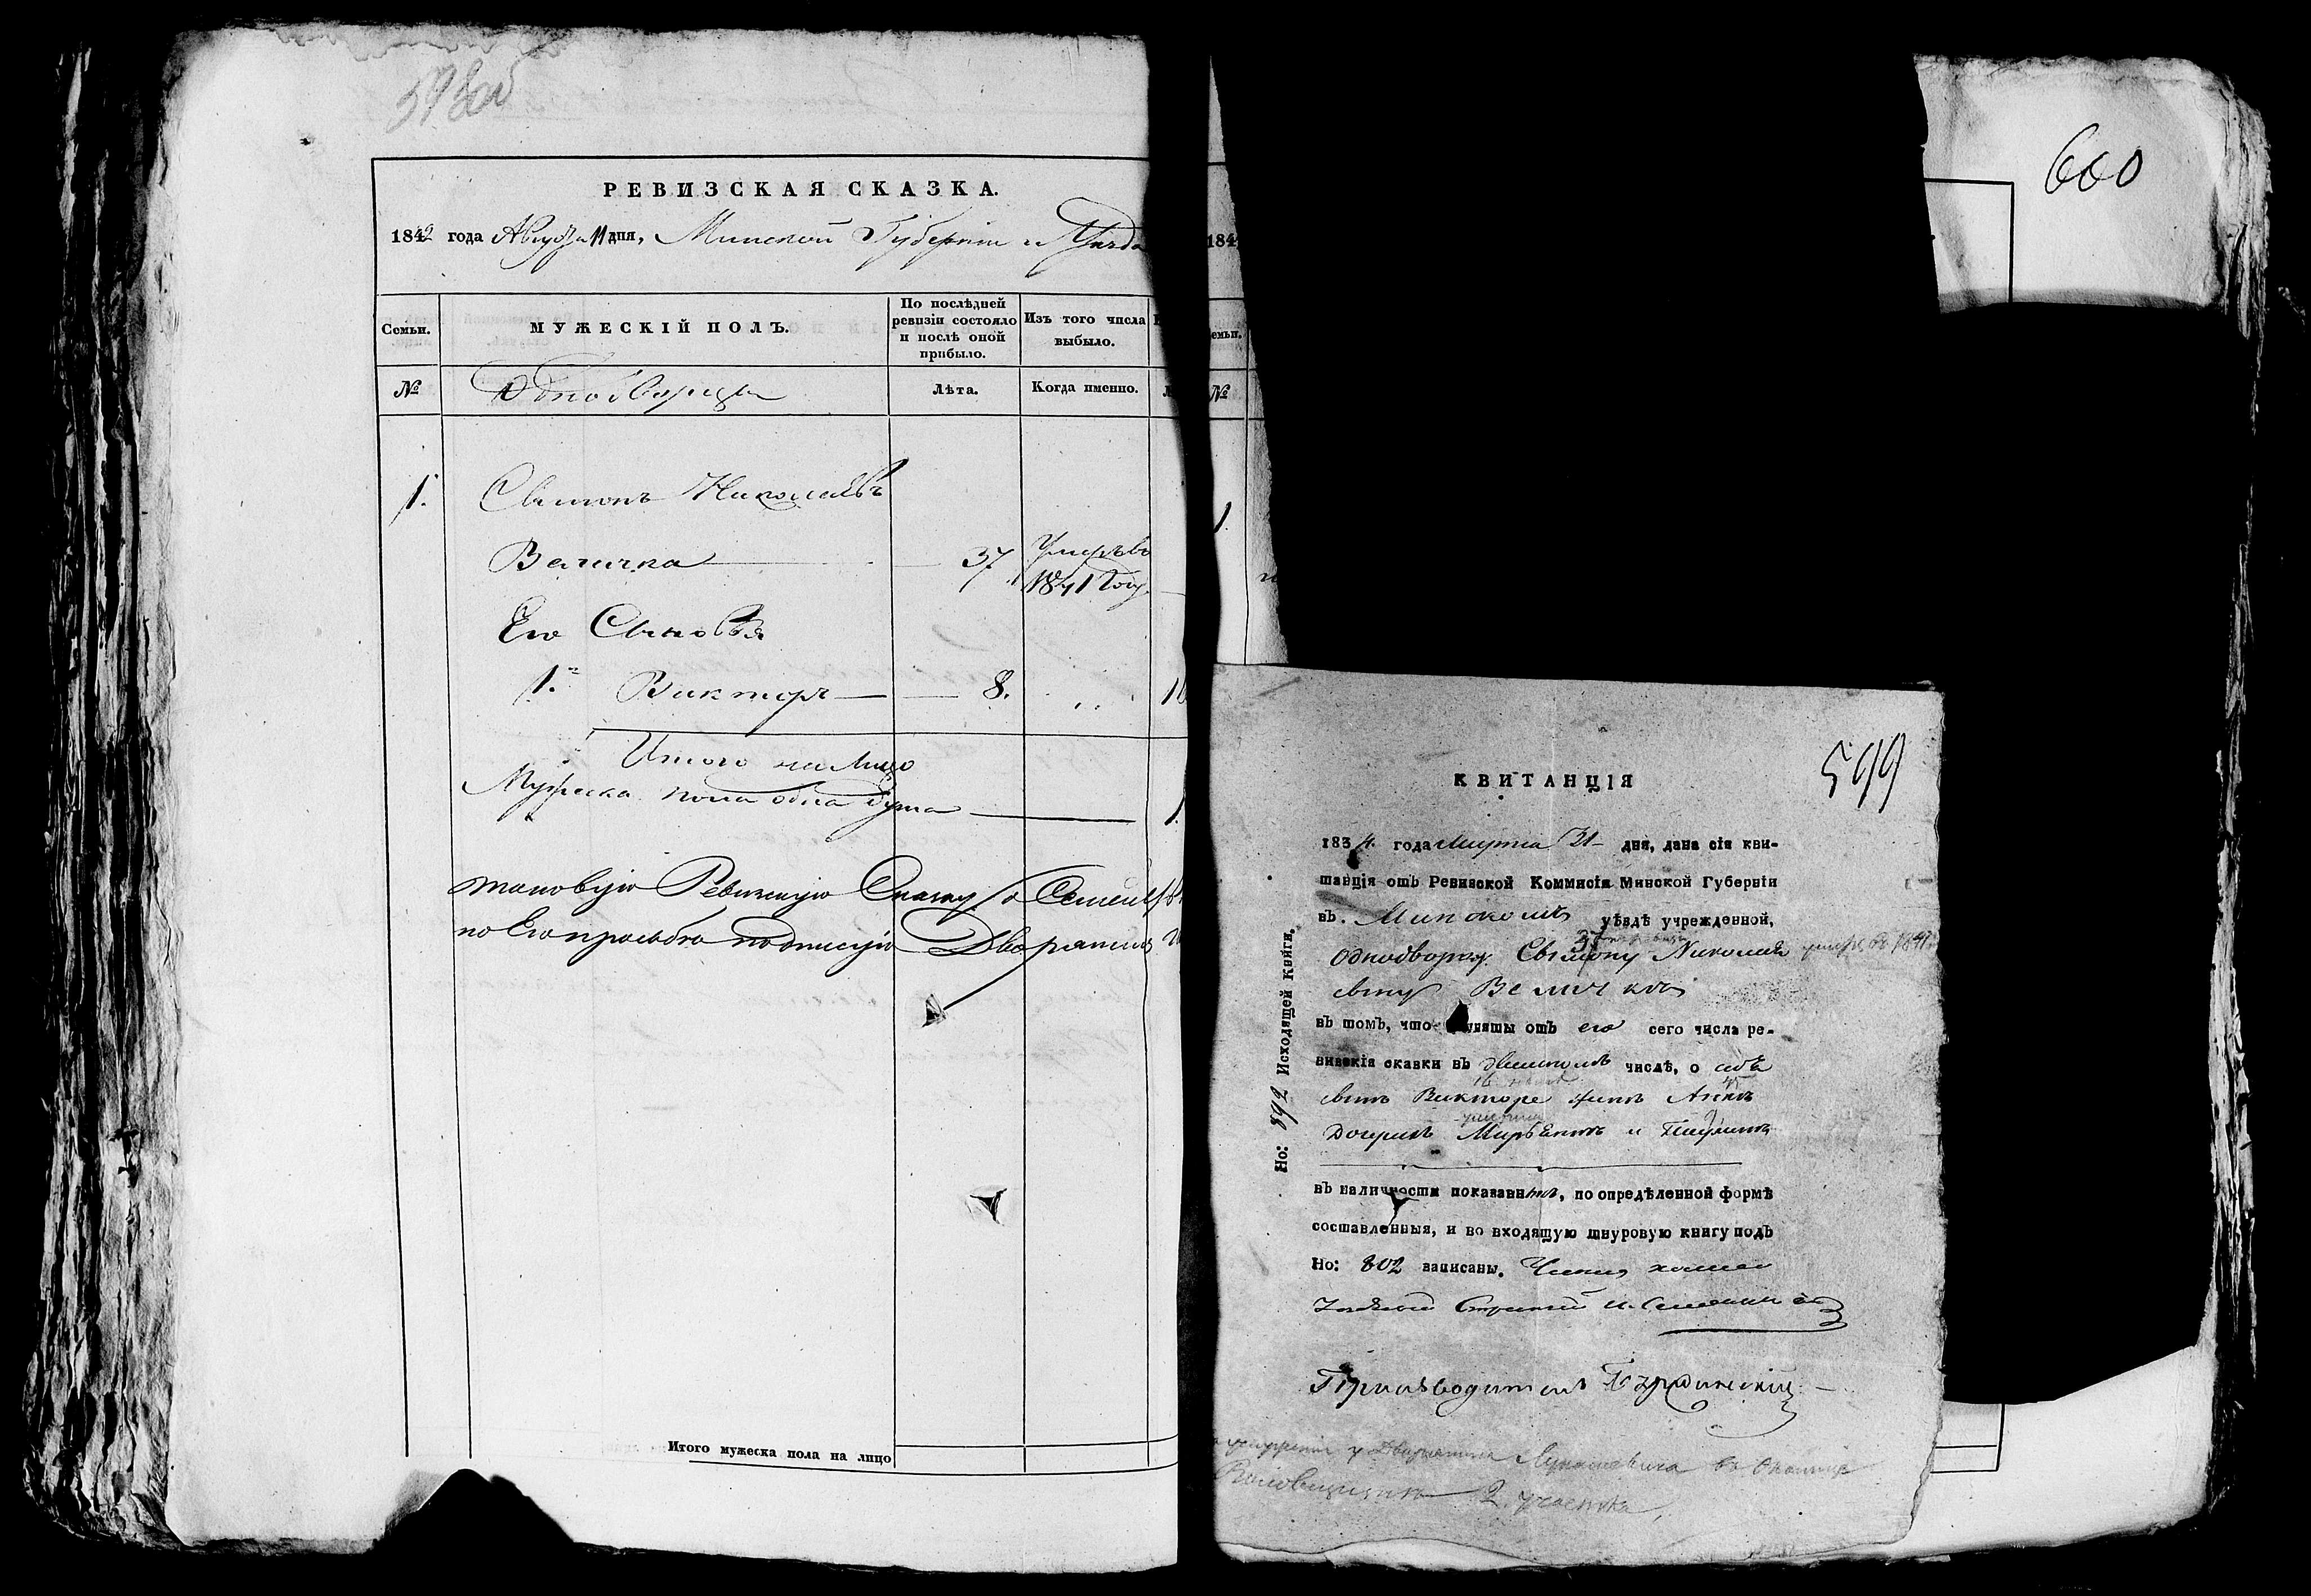 598об
РЕВИЗСКАЯ СКАЗКА.
1842 года Августа 11 дня, Минской Губерніи и Уезда
Семьи.
МУЖЕСКІЙ ПОЛЪ.
По послѣдней ревизіи состояло и послѣ оной прибыло.
Изъ того числа выбыло.
№
Однодворцы
Лѣта.
Когда именно.
1.
Сымонъ Николаевъ
Величка 37. Умеръ въ 1841 Году.
Его Сыновья
1. Викторъ 8.
Итого на лицо
Мужеска пола одна душа 1.
таковую Ревизкую Сказку
по Его прозьбѣ подписую Дворянинъ
Итого мужеска пола на лицо
184
емьи.
№
1.
660
599
КВИТАНЦІЯ
1834 года Марта 21 дня, дана сія кви-
танція отъ Ревизской Коммисіи Минской Губерніи
въ Минскомъ уѣздѣ учрежденной,
37
Однодворцу Сымону Николае умеръ въ 1841
выну Величкѣ
въ томъ, что приняты отъ его сего числа ре-
визскія сказки въ числѣ, о себѣ
16 45
сынѣ Викторе женѣ Аннѣ
умерла
Дочеряхъ и Паулинѣ
въ наличности показанныхъ, по опредѣленной формѣ
составленныя, и во входящую шнуровую книгу подъ
Но: 802 записаны.
Стряпчій
Производитель
Но: 892 Исходящей Книги.
у Дворянина Лукашевича въ Околице
2. участка